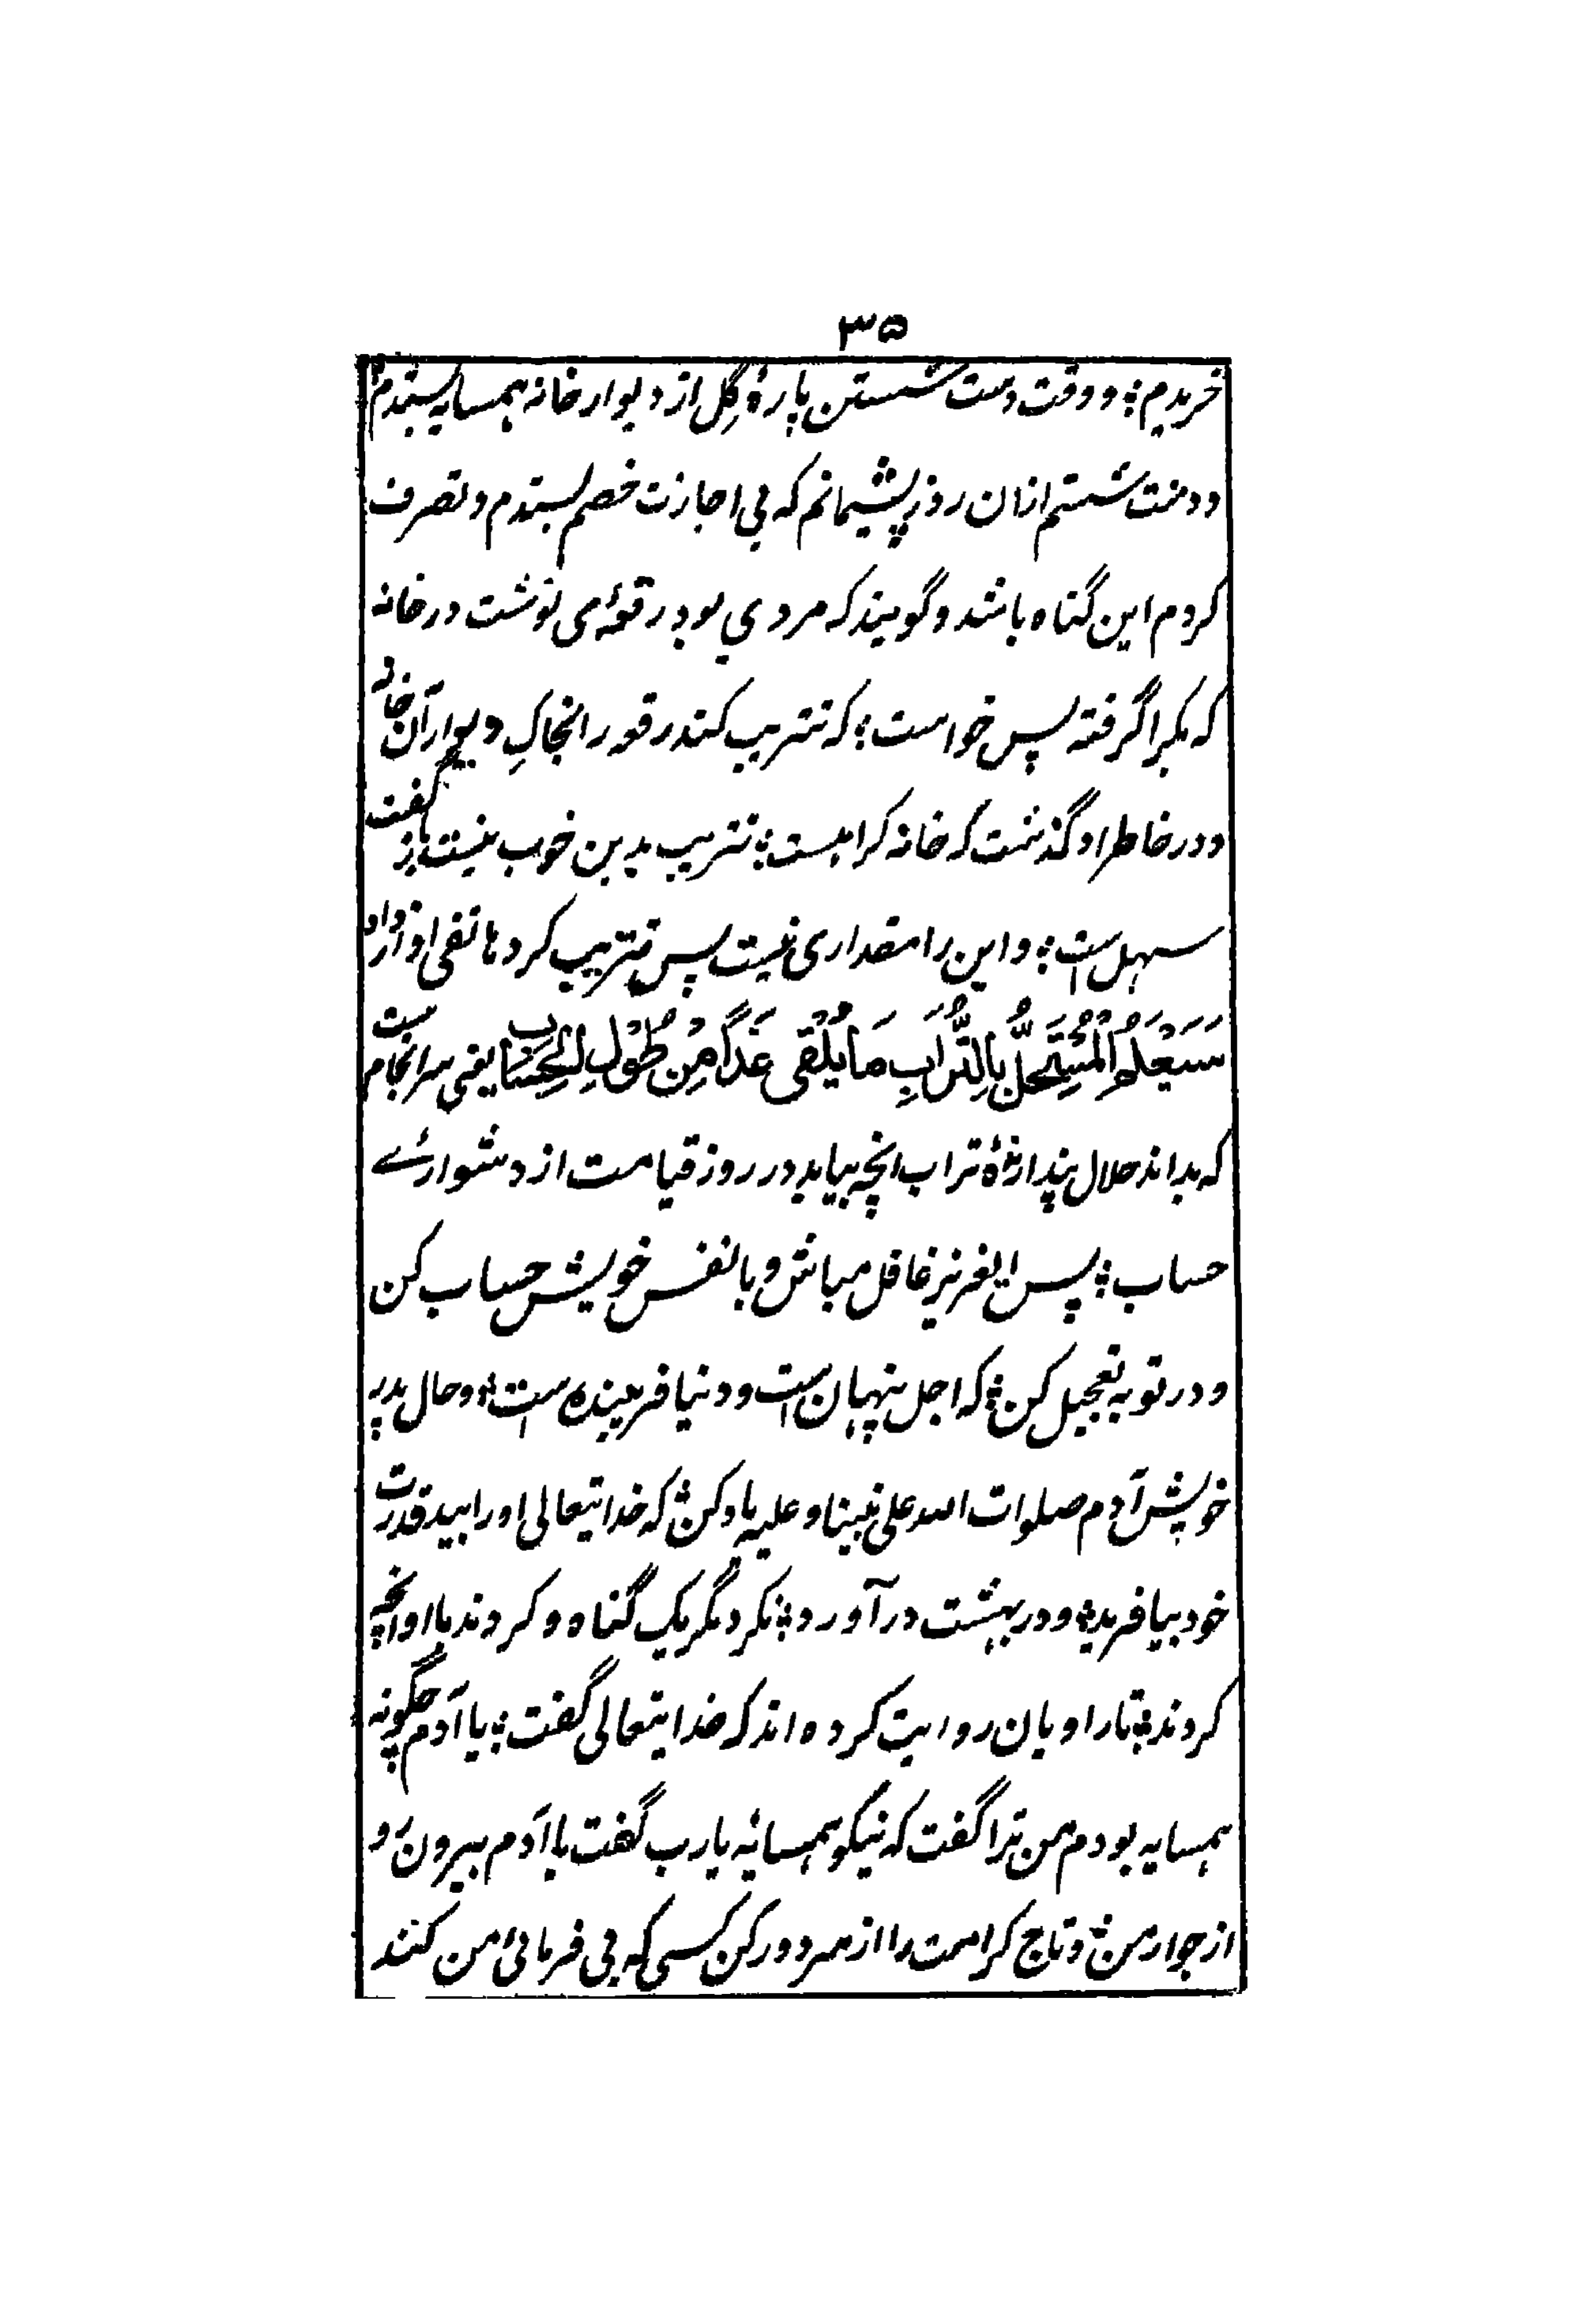 ۳۵
خریدم؛ و وقت دست شستن پارهٔ گِل از دیوار خانه همسایه بستدم
و دست شستم ازان روز پشیمانم که بی اجازت خصم بستدم و تصرف
کردم این گناه باشد و گویند که مردی بود رقعهٔ می نوشت در خانه
که بکرا گرفته پس خواست؛ که تتریب کند رقعه را بخاکِ دیوار آن خانه
و در خاطر او گذشت که خانه کراهست؛ تتریب بدین خوب نیست باز گفت
سهل است؛ و این را مقداری نیست پس تتریب کرد هاتفی او آواز داد
سَیَعْلَمُ الْمُسْتَحِلُّ بِالتُّرَابِ مَا یَلْقَی غَدًا مِنْ طُوْلِ الْحِسَابِ یعنی سرانجام ست
که بداند حلال پندارندهٔ تراب انچه بیابد در روز قیامت از دشوارئے
حساب؛ پس ایعزیز غافل مباش و با نفس خویش حساب کن
و در توبه تعجیل کن؛ که اجل پنهان است و دنیا فریبنده است؛ و حال پدر
خویش آدم صلوات الله علی نبینا و علیه یاد کن؛ که خدایتعالی او را بید قدرت
خود بیافرید؛ و در بهشت در آورد؛ نکرد مگر یک گناه و کردند با او انچه
کردند؛ تا راویان روایت کرده اند که خدایتعالی گفت؛ یا آدم چگونه
همسایه بودم من ترا گفت که نیکو همسایهٔ یارب گفت یا آدم بیرون رَو
از جوار من؛ و تاج کرامت را از سر دور کن کسی که بی فرمانیٔ من کند